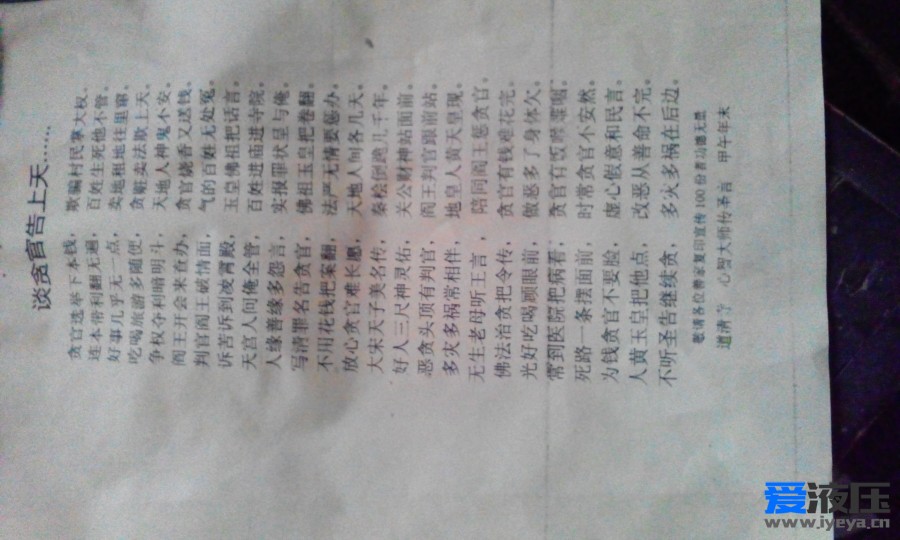 谈贪官告上天……
贪官选举下本钱，欺骗村民掌大权。
连本带利翻无遍，百姓生死他不管。
好事几乎无一点，卖地租地往里窜。
吃喝旅游多随便，贪赃卖法欺上天。
争权夺利暗明斗，天地人神鬼不安。
阎王开会来查办，贪官烧香又送钱。
判官阎王破情面，气的百姓无处冤。
诉苦诉到凌霄殿，玉皇佛祖把话言。
天宫人间俺全管，百姓进庙进寺院。
人缘善缘多怨言，实报罪状呈与俺。
写清罪名告贪官，佛祖玉皇把卷翻。
不用花钱把案翻，法严无情要惩办。
放心贪官难长愿，天地人间各几天。
大宋天子美名传，秦桧倒跪几千年。
好人三尺神灵佑，关公财神站面前。
恶贪头顶有判官，阎王判官跟前站。
多灾多祸常相伴，地皇人黄天皇现。
无生老母听王言，陪同阎王惩贪官。
佛法治贪把令传，贪官有钱难花完。
光好吃喝顾眼前，做恶多了身体欠。
常到医院把病看，贪官有饭难咽。
死路一条摆面前，时常贪官不安然。
为钱贪官不要脸，虚心假意和民言。
人黄玉皇把他点，改恶从善命不完。
不听圣告继续贪，多火多祸在后边。
敬请各位善家复印宣传100份善功德无量
道清子 心智大师传圣言 甲午年末
爱液压
www.iyeya.cn